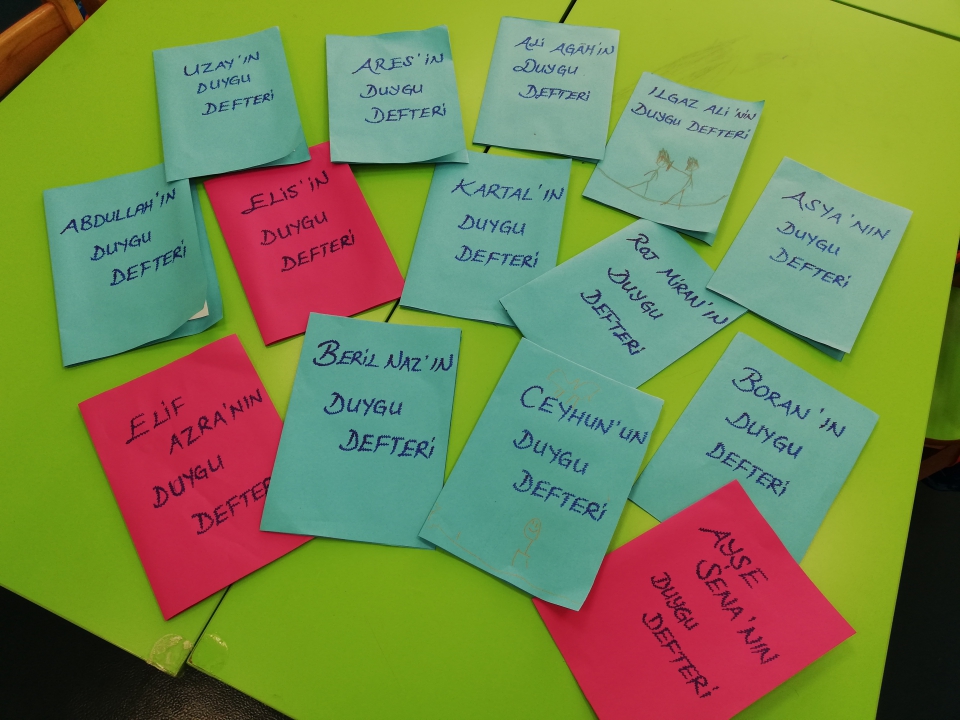 UZAY'IN
DUYGU
DEFTERİ
ARES'İN
DUYGU
DEFTERİ
ALİ AGÂH'IN
DUYGU
DEFTERİ
ILGAZ ALİ'NİN
DUYGU DEFTERİ
ABDULLAH'IN
DUYGU
DEFTERİ
ELİS'İN
DUYGU
DEFTERİ
KARTAL'IN
DUYGU
DEFTERİ
ROJ MİRAN'IN
DUYGU
DEFTERİ
ASYA'NIN
DUYGU
DEFTERİ
ELİF
AZRA'NIN
DUYGU
DEFTER
BERİL NAZ'IN
DUYGU
DEFTERİ
CEYHUN'UN
DUYGU
DEFTERİ
BORAN'IN
DUYGU
DEFTERİ
AYŞE
SENA'NIN
DUYGU
DEFTERİ